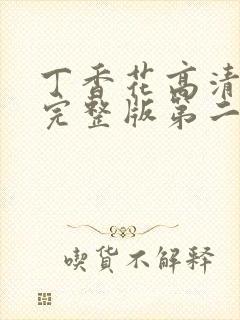 丁香花高清
完整版第二
喫货不解释